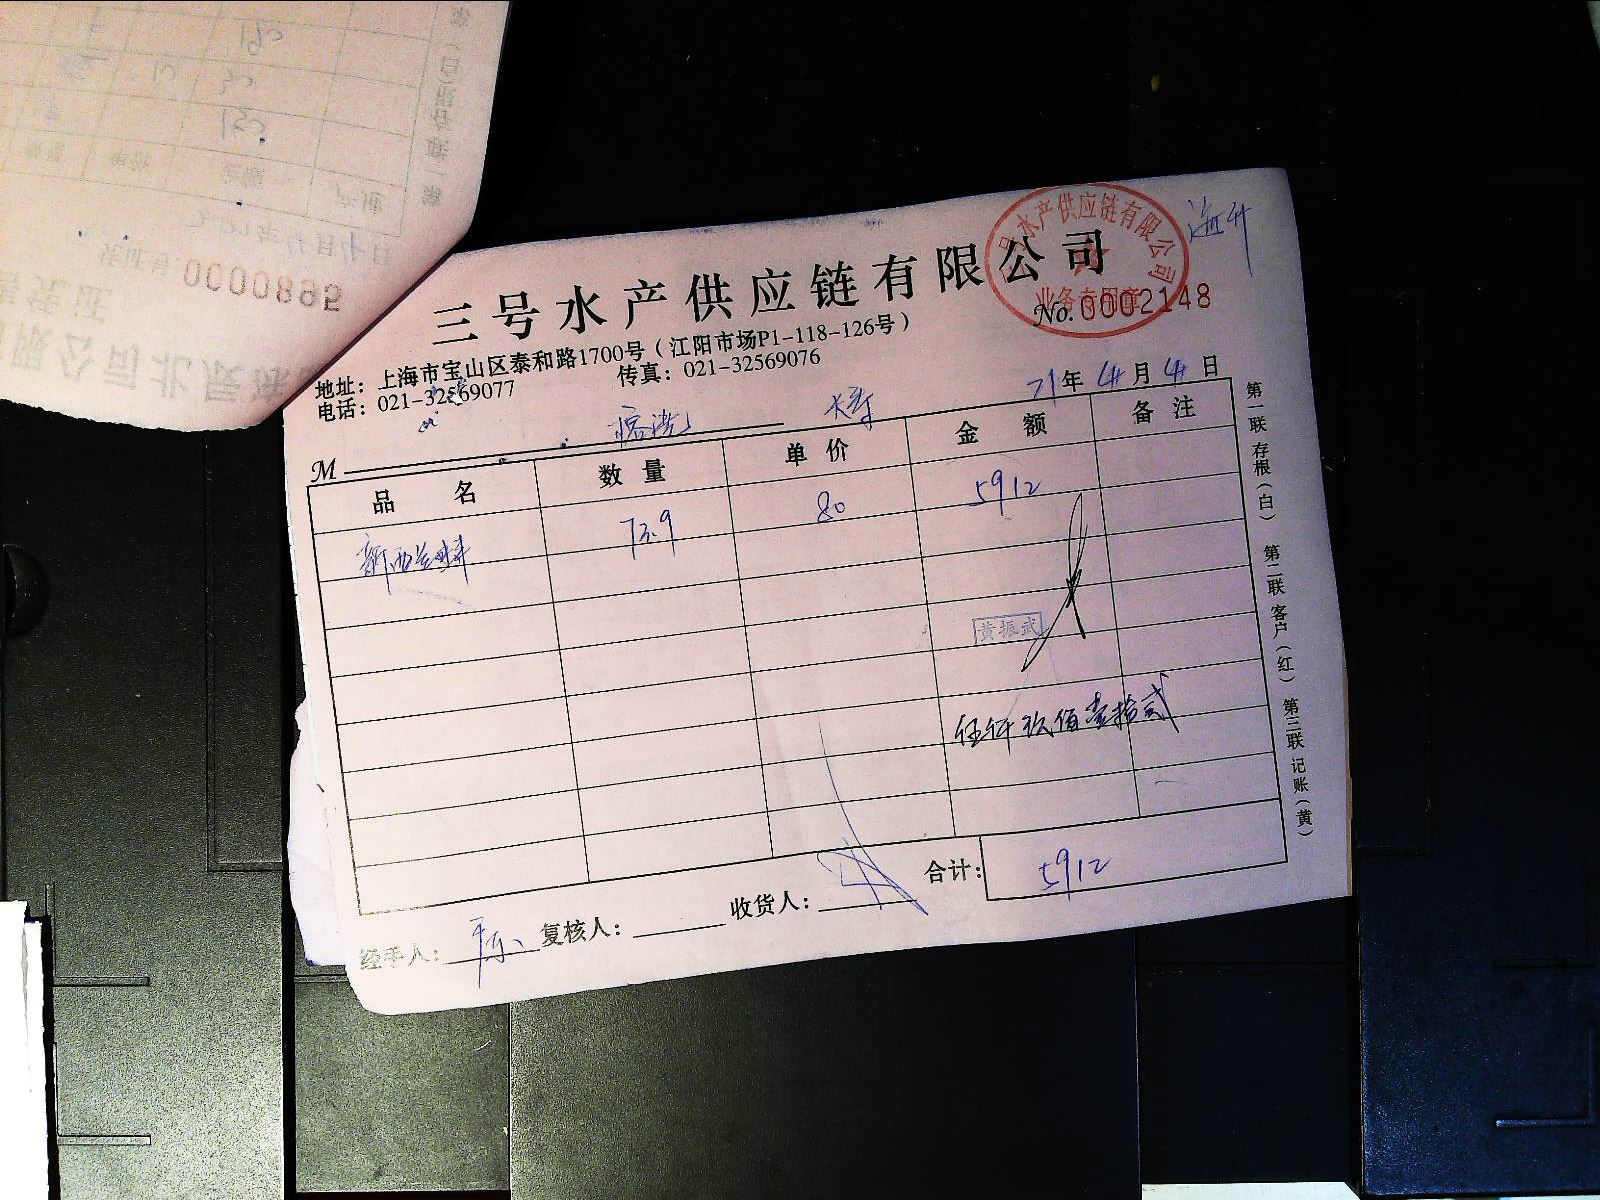 0000895
三号水产供应链有限公司
号水产供应链有限公司
业务专用章
海升
No. 0002148
地址：上海市宝山区泰和路1700号（江阳市场P1-118-126号）
电话：021-32569077 传真：021-32569076
21年 4月 4日
M
品名 数量 单价 金额 备注
新西兰 73.9 80 5912
黄振武
伍仟玖佰壹拾贰
合计： 5912
经手人： 复核人： 收货人：
第一联 存根（白） 第二联 客户（红） 第三联 记账（黄）